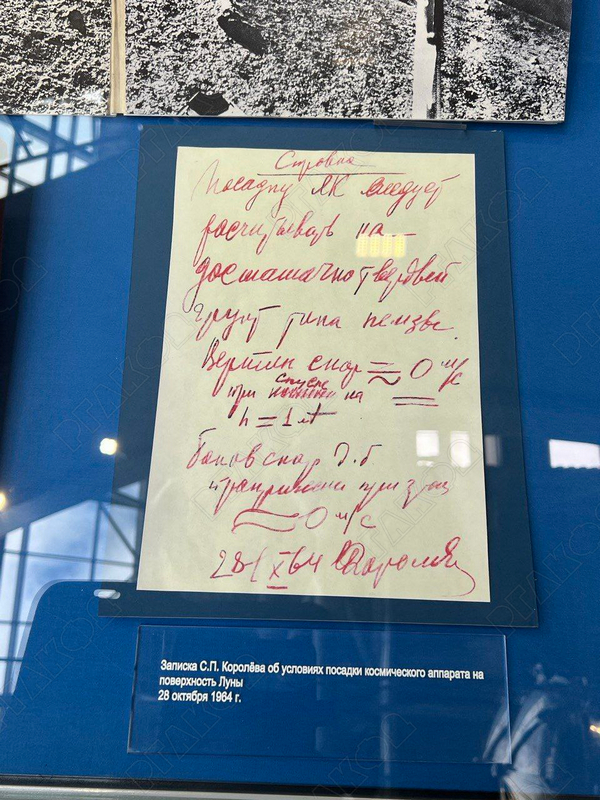 Справка
Посадку ЛК следует
расчитывать на
достаточно твердый
грунт типа пемзы.
Вертик скор ≈ 0 м/с
при спуске на
h = 1 м
Боков скор д.б
при
≈ 0 м/с
28/X 64 СКоролев
Записка С.П. Королёва об условиях посадки космического аппарата на
поверхность Луны
28 октября 1964 г.